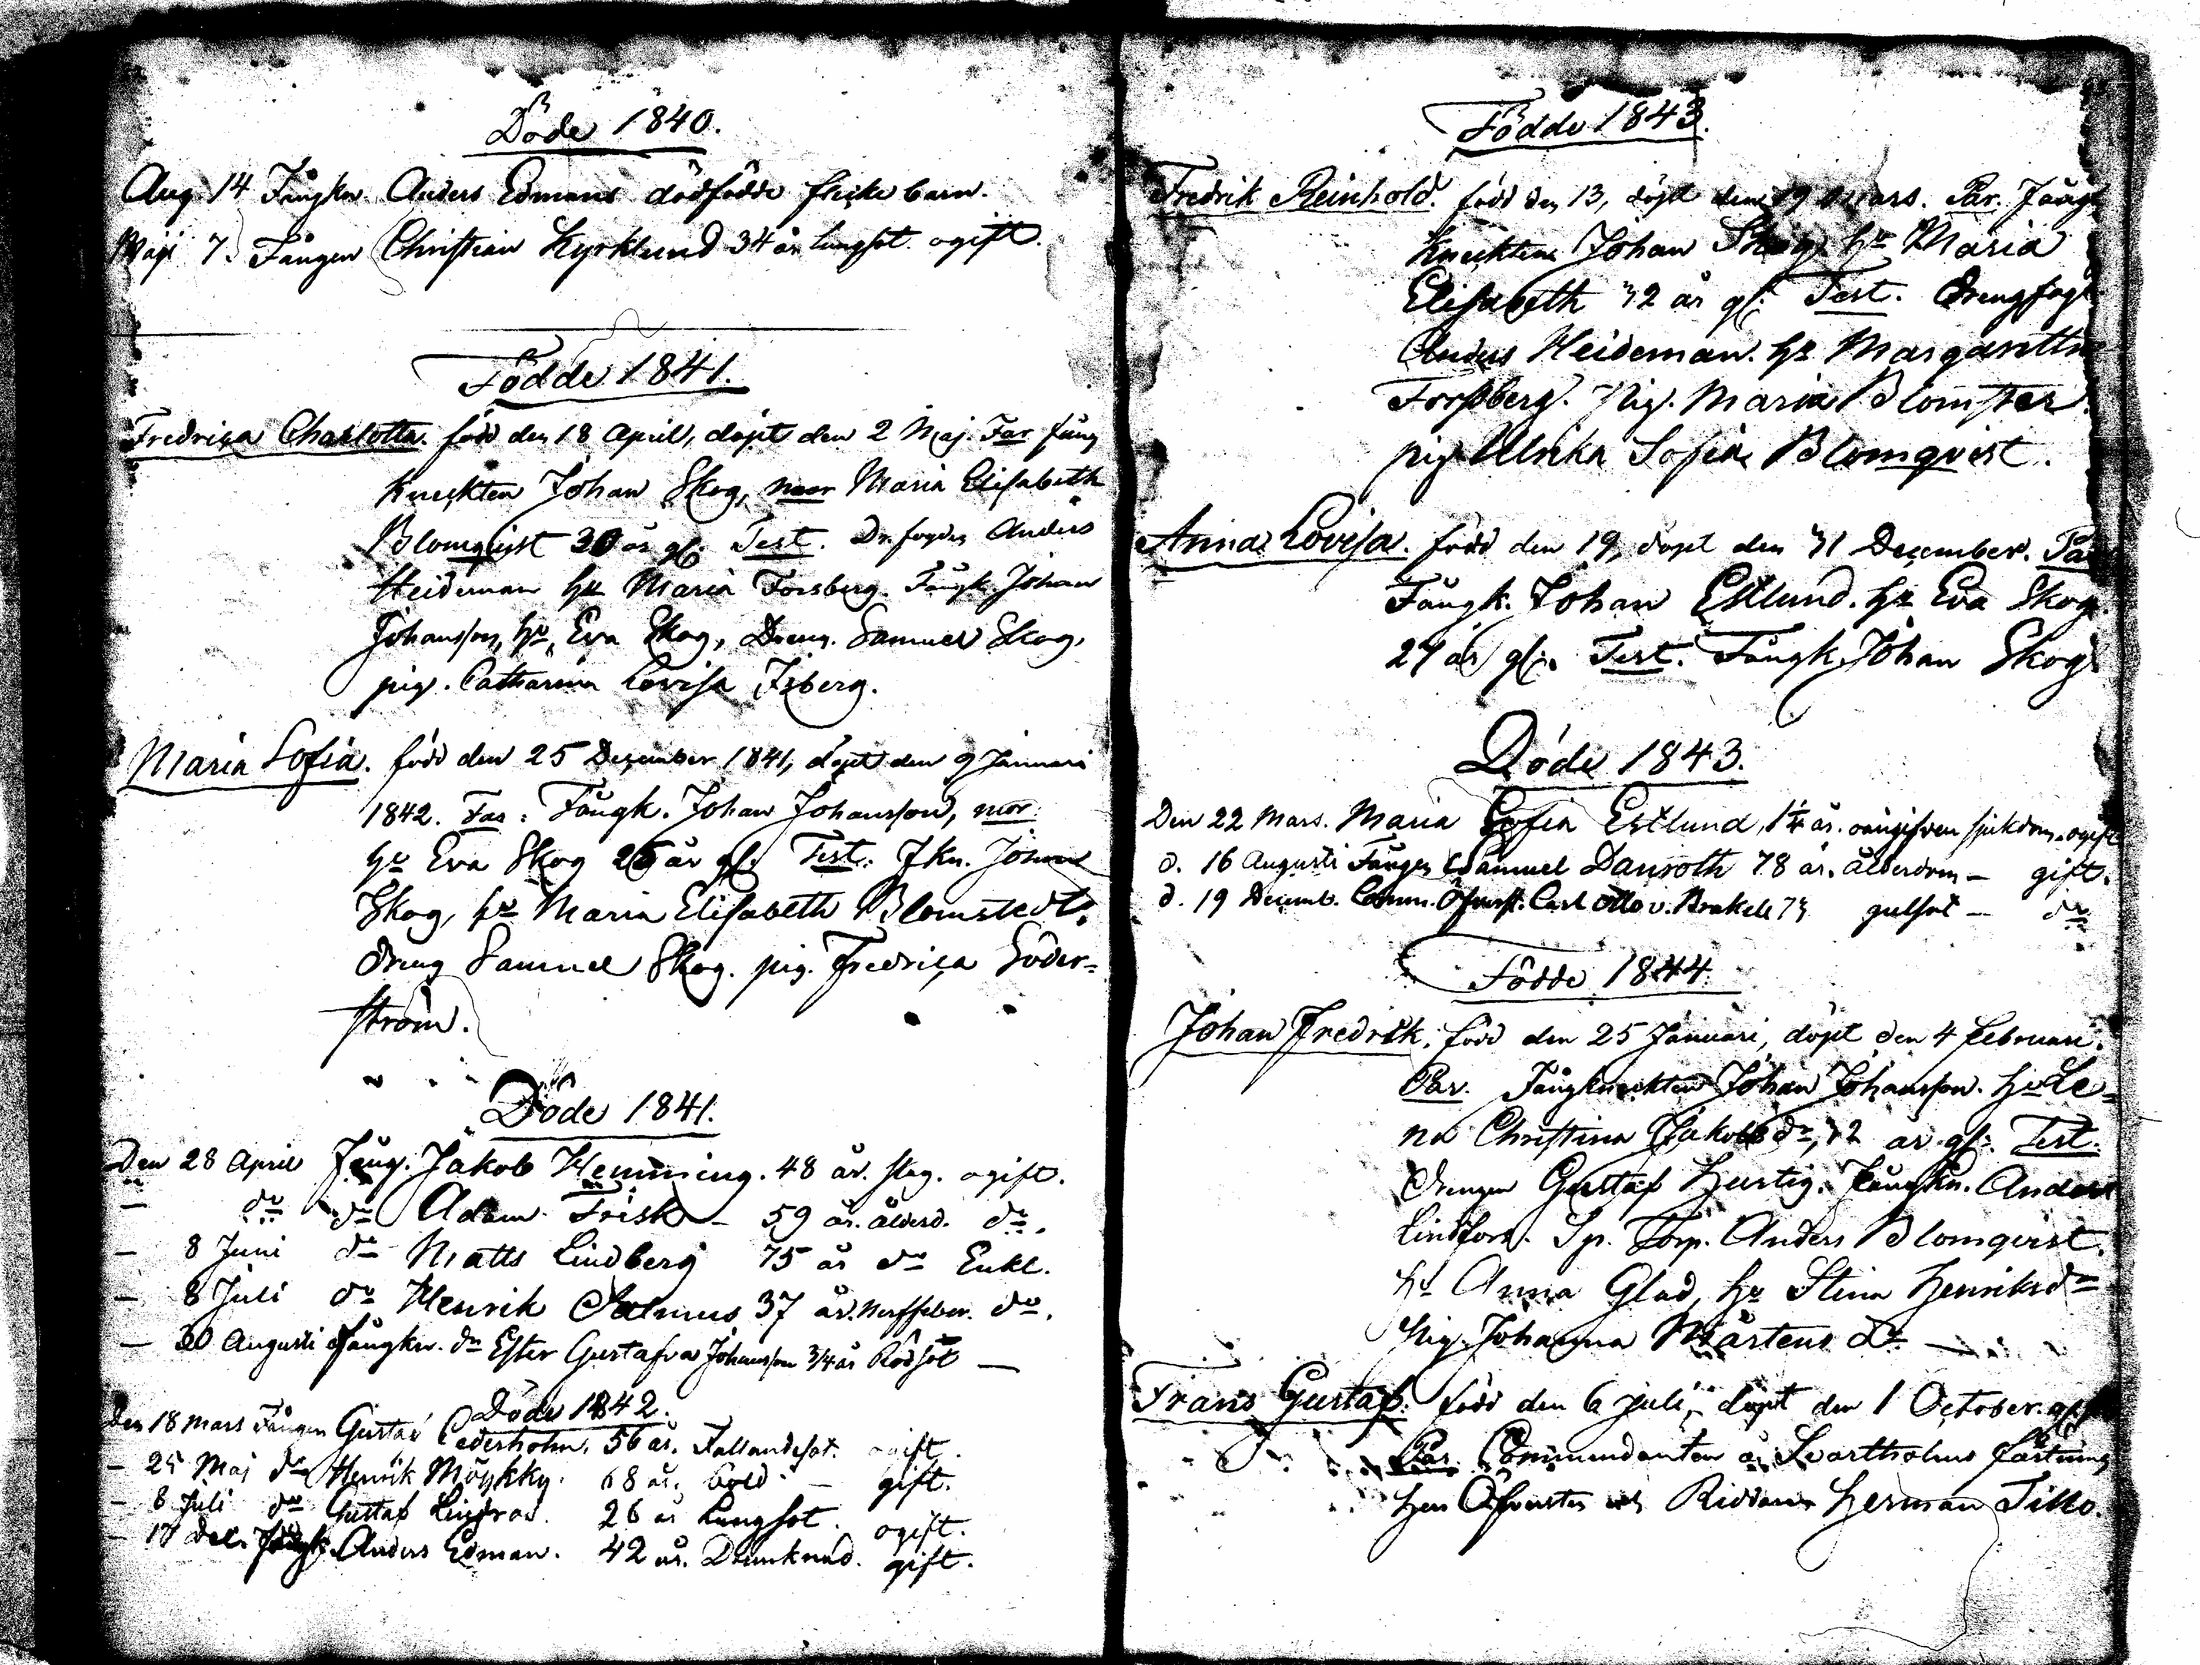 Döde 1840.
Aug. 14 Fångkn. Anders Edmans dödfödde flicke barn.
Maji 7. Fången Christian Kyrklund 34 år lungsot. ogift.
Födde 1841.
Fredrica Charlotta. född den 18 April, döpt den 2 Maj. Far fång
kneckten Johan Skog, moor Maria Elisabeth
Blomqvist 30 år gl. Test. Dr. fogden Anders
Heideman hu Maria Forsberg. Fångk. Johan
Johansson, hu, Eva Skog, Dreng. Samuel Skog,
pig. Catharina Lovisa Isberg.
Maria Sofia. född den 25 December 1841, döpt den 9 Januari
1842. Far: Fångk. Johan Johansson, mor:
hu Eva Skog 25 år gl. Test: Fkn. Johan
Skog, hu Maria Elisabeth Blomstedt.
dreng Samuel Skog. pig. Fredrica Söder=
ström.
Döde 1841.
Den 28 April Fång. Jakob Hemming. 48 år. slag. ogift.
— do do Adam Frisk — 59 år. ålderd. do.
— 8 Juni do Matts Lindberg 75 år do Enkl.
— 8 Juli do Henrik Salmus 37 år. Nerffeber. do.
— 20 Augusti Fångkn. dr Ester Gustafva Johansson 3/4 år Rödsot —
Döde 1842.
Den 18 Mars Fången Gustaf Cederholm. 56 år. Fallandesot. ogift.
— 25 Maj do Henrik Möykky. 68 år. — gift.
— 8 Juli do Gustaf 26 år Lungsot. ogift.
— 17 Dec. Fångk. Anders Edman. 42 år. Drunknad. gift.
Födde 1843.
Fredrik Reinhold. född den 13, döpt den 19 Mars. Par. Fång
knekten Johan Skog. hu Maria
Elisabeth 32 år gl. Test. Drengfogd
Anders Heideman. hu Margaretha
Forssberg. Pig. Maria Blomster.
pig. Ulrika Sofia Blomqvist.
Anna Lovisa. född den 19, döpt den 31 December. Par
Fångk. Johan Estlund. hu Eva Skog.
27 år gl. Test. Fångk. Johan Skog.
Döde 1843.
Den 22 Mars. Maria Sofia Estlund, 1 1/4 år. oangifven sjukdom. ogift
d. 16 Augusti Fången Samuel Danroth 78 år. ålderdom — gift.
d. 19 Decemb. Comm. Öfverst. Carl Otto v. Brakel 73 gulsot — do
Födde 1844.
Johan Fredrik. född den 25 Januari, döpt den 4 februari.
Par. Fångknekten Johan Johansson. hu Le=
na Christina Jakobs dr, 32 år gl. Test.
Drengen Gustaf Hurtig. Fångkn. Anders
Lindfors. Sp. Torp. Anders Blomqvist.
hu Anna Glad, hu Stina Henriksdr
Pig. Johanna Mårtens dr. —
Frans Gustaf. född den 6 Juli, döpt den 1 October.
Par. Commendanten å Svartholms fästning
Herr Öfversten och Riddaren Herman Tillo.